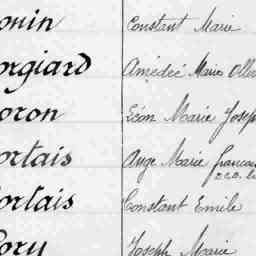 onin Constant Marie
orgiard Amédée Marie Olle
oron Léon Marie Josep
ortais Ange Marie francou
ortais Constant Emile
ory Joseph Marie